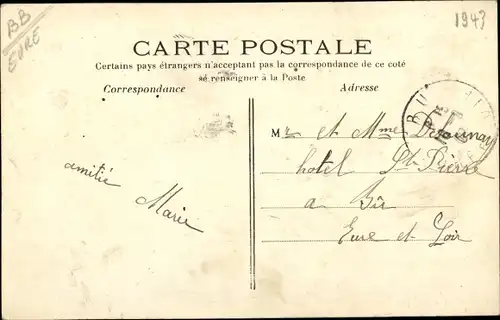 BB
EURE
1943
CARTE POSTALE
Certains pays étrangers n'acceptent pas la correspondance de ce coté
se renseigner à la Poste
Correspondance
Adresse
Mr et Mme Delaunay
hotel St Pierre
a Bû
Eure et Loir
amitié
Marie
BU